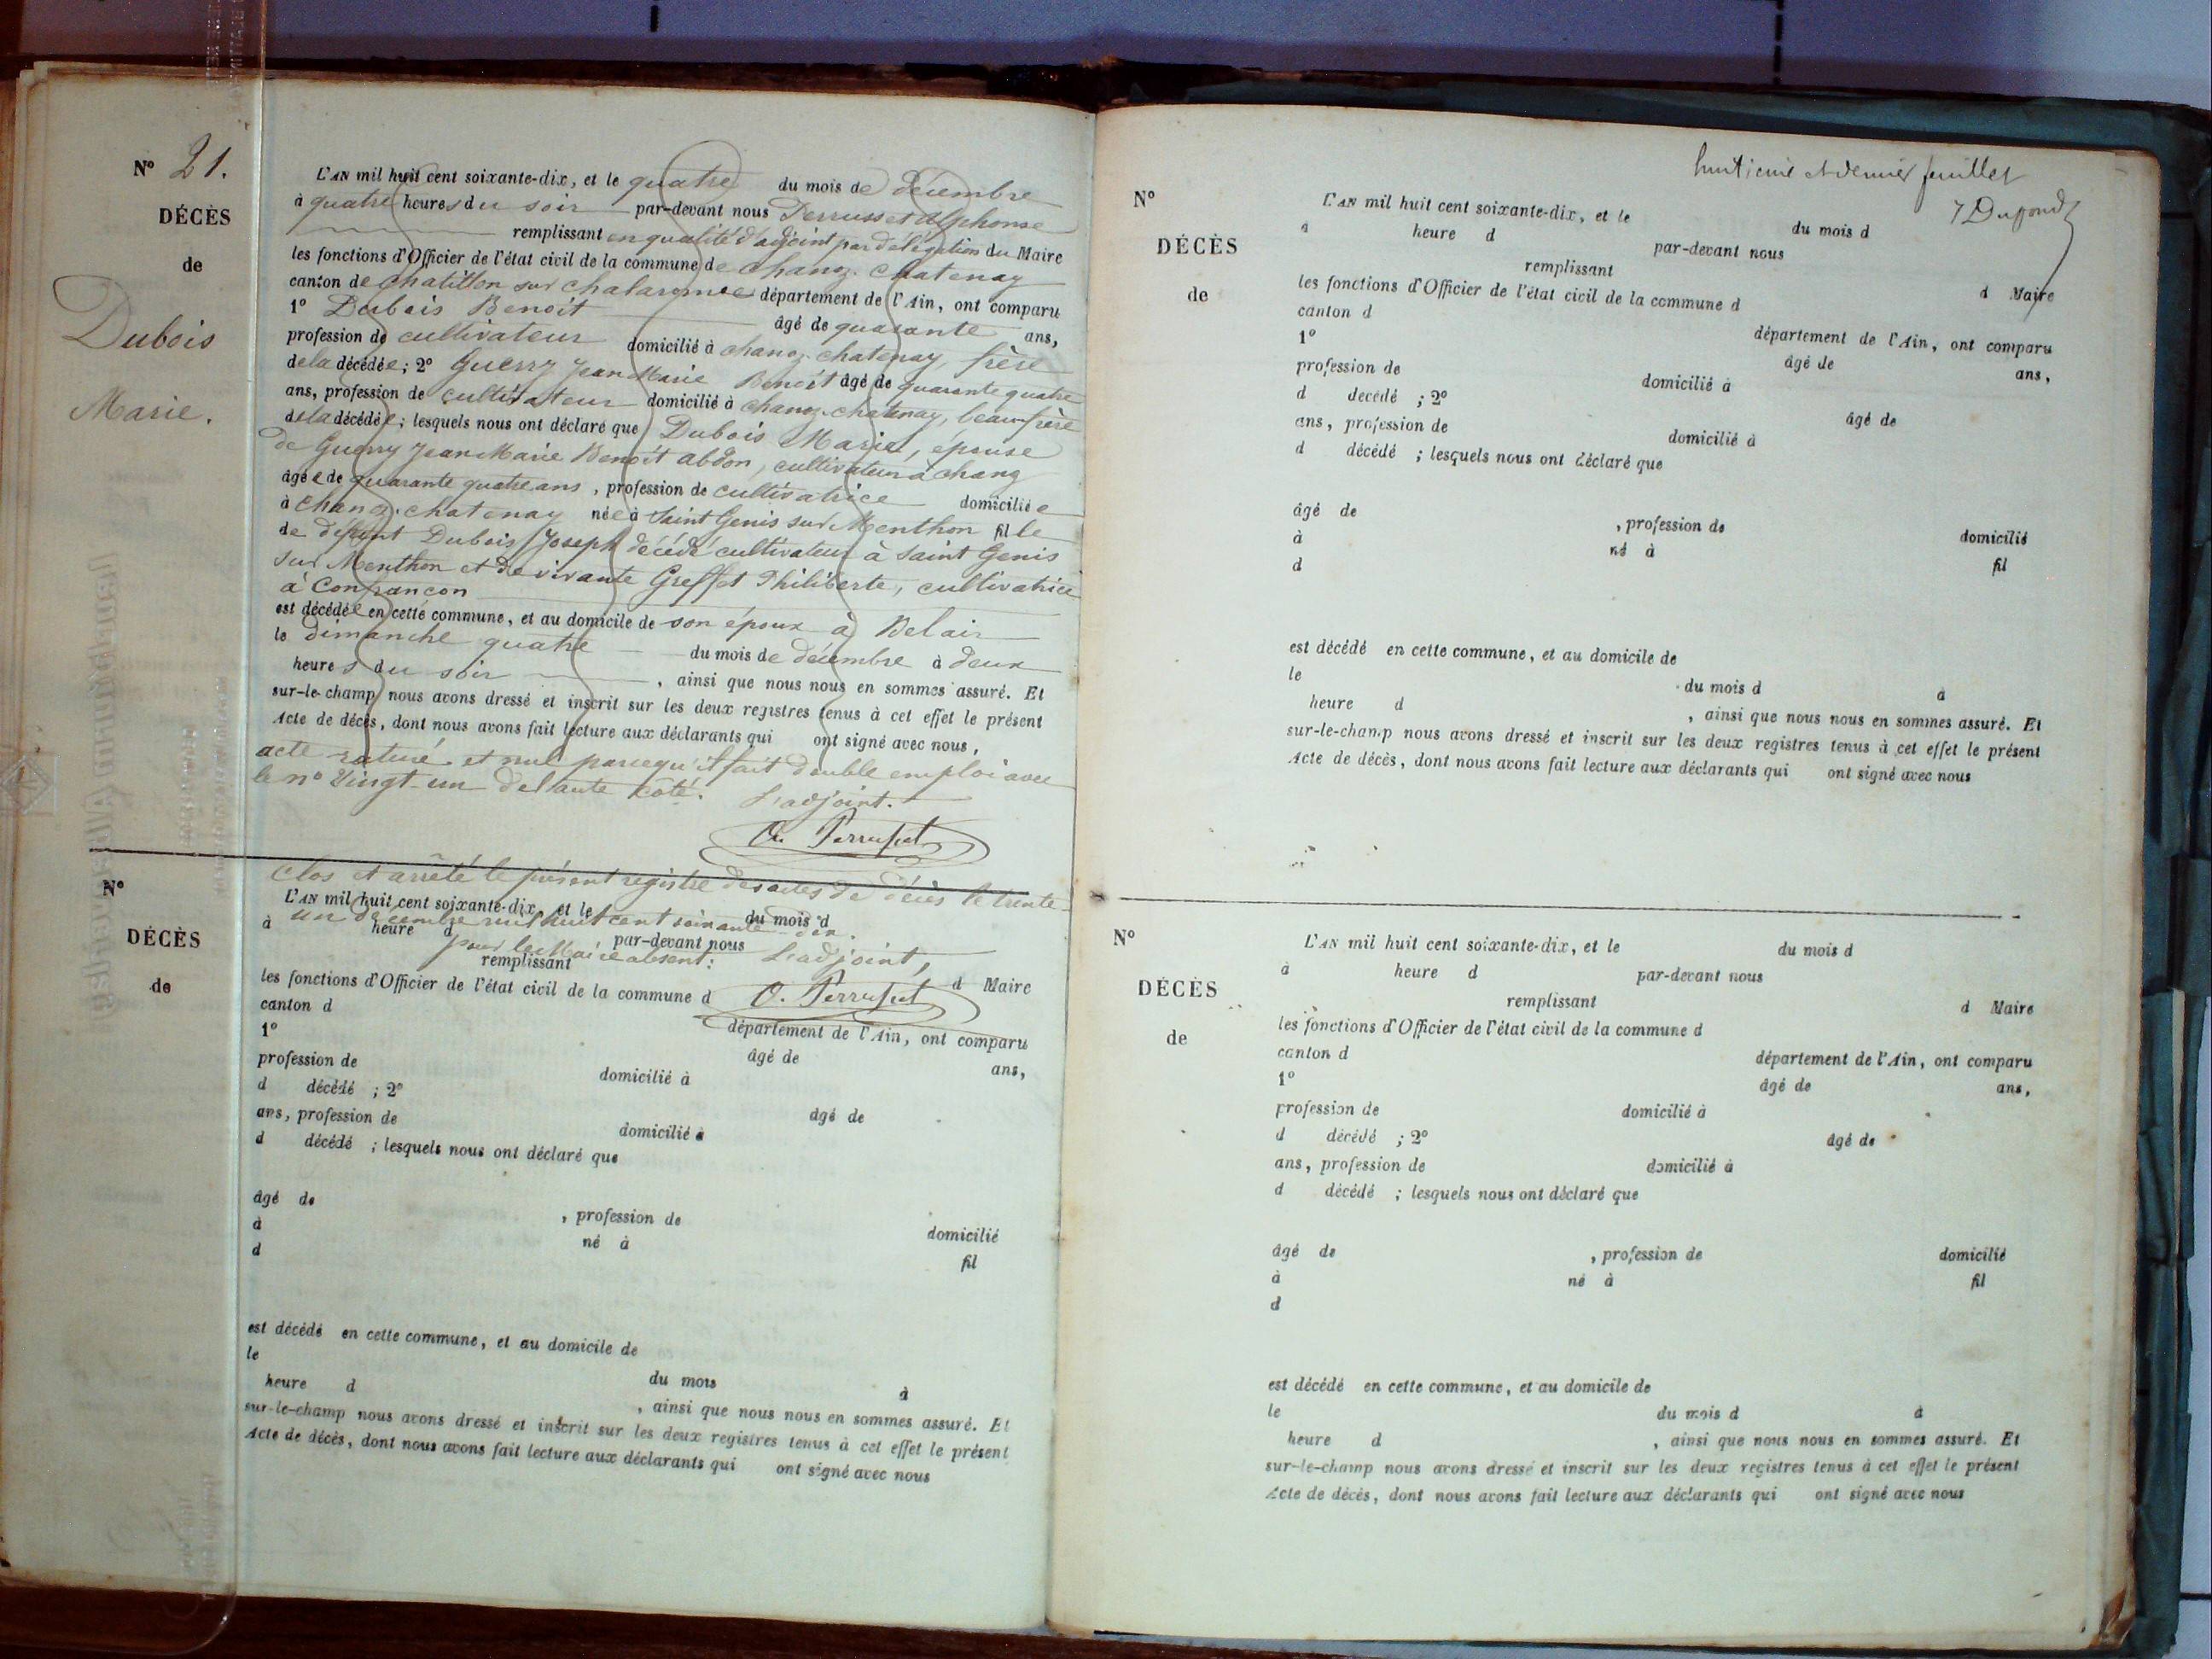 N° 21.
DÉCÈS
de
Dubois
Marie.
L'AN mil huit cent soixante-dix, et le quatre du mois de décembre
à quatre heures du soir par-devant nous Perrusset Alphonse
remplissant en qualité d'adjoint par délégation du Maire
les fonctions d'Officier de l'état civil de la commune de Chanoz-Chatenay
canton de Chatillon sur Chalaronne département de l'Ain, ont comparu
1° Dubois Benoit âgé de quarante ans,
profession de cultivateur domicilié à Chanoz-Chatenay, frère
de la décédée; 2° Guerry Jean Marie Benoît âgé de quarante quatre
ans, profession de cultivateur domicilié à Chanoz-Chatenay, beau-frère
de la décédée; lesquels nous ont déclaré que Dubois Marie, épouse
de Guerry Jean Marie Benoît abdon, cultivateur à chanoz
âgée de quarante quatre ans, profession de cultivatrice domiciliée
à Chanoz-Chatenay née à Saint Genis sur Menthon fille
de défunt Dubois Joseph décédé cultivateur à Saint Genis
sur Menthon et de vivante Greffet Philiberte, cultivatrice
à Confrançon
est décédée en cette commune, et au domicile de son époux à Belair
le dimanche quatre du mois de décembre à deux
heures du soir, ainsi que nous nous en sommes assuré. Et
sur-le-champ nous avons dressé et inscrit sur les deux registres tenus à cet effet le présent
Acte de décès, dont nous avons fait lecture aux déclarants qui ont signé avec nous,
acte raturé et nul parcequ'il fait double emploi avec
le n° Vingt-un de l'autre côté. L'adjoint.
A. Perrusset
Clos et arrêté le présent registre des actes de décès le trente
un décembre mil huit cent soixante-dix.
pour le Maire absent: L'adjoint,
A. Perrusset
N°
DÉCÈS
de
L'AN mil huit cent soixante-dix, et le du mois d
à heure d par-devant nous
remplissant d Maire
les fonctions d'Officier de l'état civil de la commune d
canton d département de l'Ain, ont comparu
1° âgé de ans,
profession de domicilié à
d décédé ; 2° âgé de
ans, profession de domicilié à
d décédé ; lesquels nous ont déclaré que
âgé de , profession de domicilié
à né à fil
d
est décédé en cette commune, et au domicile de
le du mois à
heure d , ainsi que nous nous en sommes assuré. Et
sur-le-champ nous avons dressé et inscrit sur les deux registres tenus à cet effet le présent
Acte de décès, dont nous avons fait lecture aux déclarants qui ont signé avec nous
huitième et dernier feuillet
Dupond
N°
DÉCÈS
de
L'AN mil huit cent soixante-dix, et le du mois d
à heure d par-devant nous
remplissant d Maire
les fonctions d'Officier de l'état civil de la commune d
canton d département de l'Ain, ont comparu
1° âgé de ans,
profession de domicilié à
d décédé ; 2° âgé de
ans, profession de domicilié à
d décédé ; lesquels nous ont déclaré que
âgé de , profession de domicilié
à né à fil
d
est décédé en cette commune, et au domicile de
le du mois d à
heure d , ainsi que nous nous en sommes assuré. Et
sur-le-champ nous avons dressé et inscrit sur les deux registres tenus à cet effet le présent
Acte de décès, dont nous avons fait lecture aux déclarants qui ont signé avec nous
N°
DÉCÈS
de
L'AN mil huit cent soixante-dix, et le du mois d
à heure d par-devant nous
remplissant d Maire
les fonctions d'Officier de l'état civil de la commune d
canton d département de l'Ain, ont comparu
1° âgé de ans,
profession de domicilié à
d décédé ; 2° âgé de
ans, profession de domicilié à
d décédé ; lesquels nous ont déclaré que
âgé de , profession de domicilié
à né à fil
d
est décédé en cette commune, et au domicile de
le du mois d à
heure d , ainsi que nous nous en sommes assuré. Et
sur-le-champ nous avons dressé et inscrit sur les deux registres tenus à cet effet le présent
Acte de décès, dont nous avons fait lecture aux déclarants qui ont signé avec nous